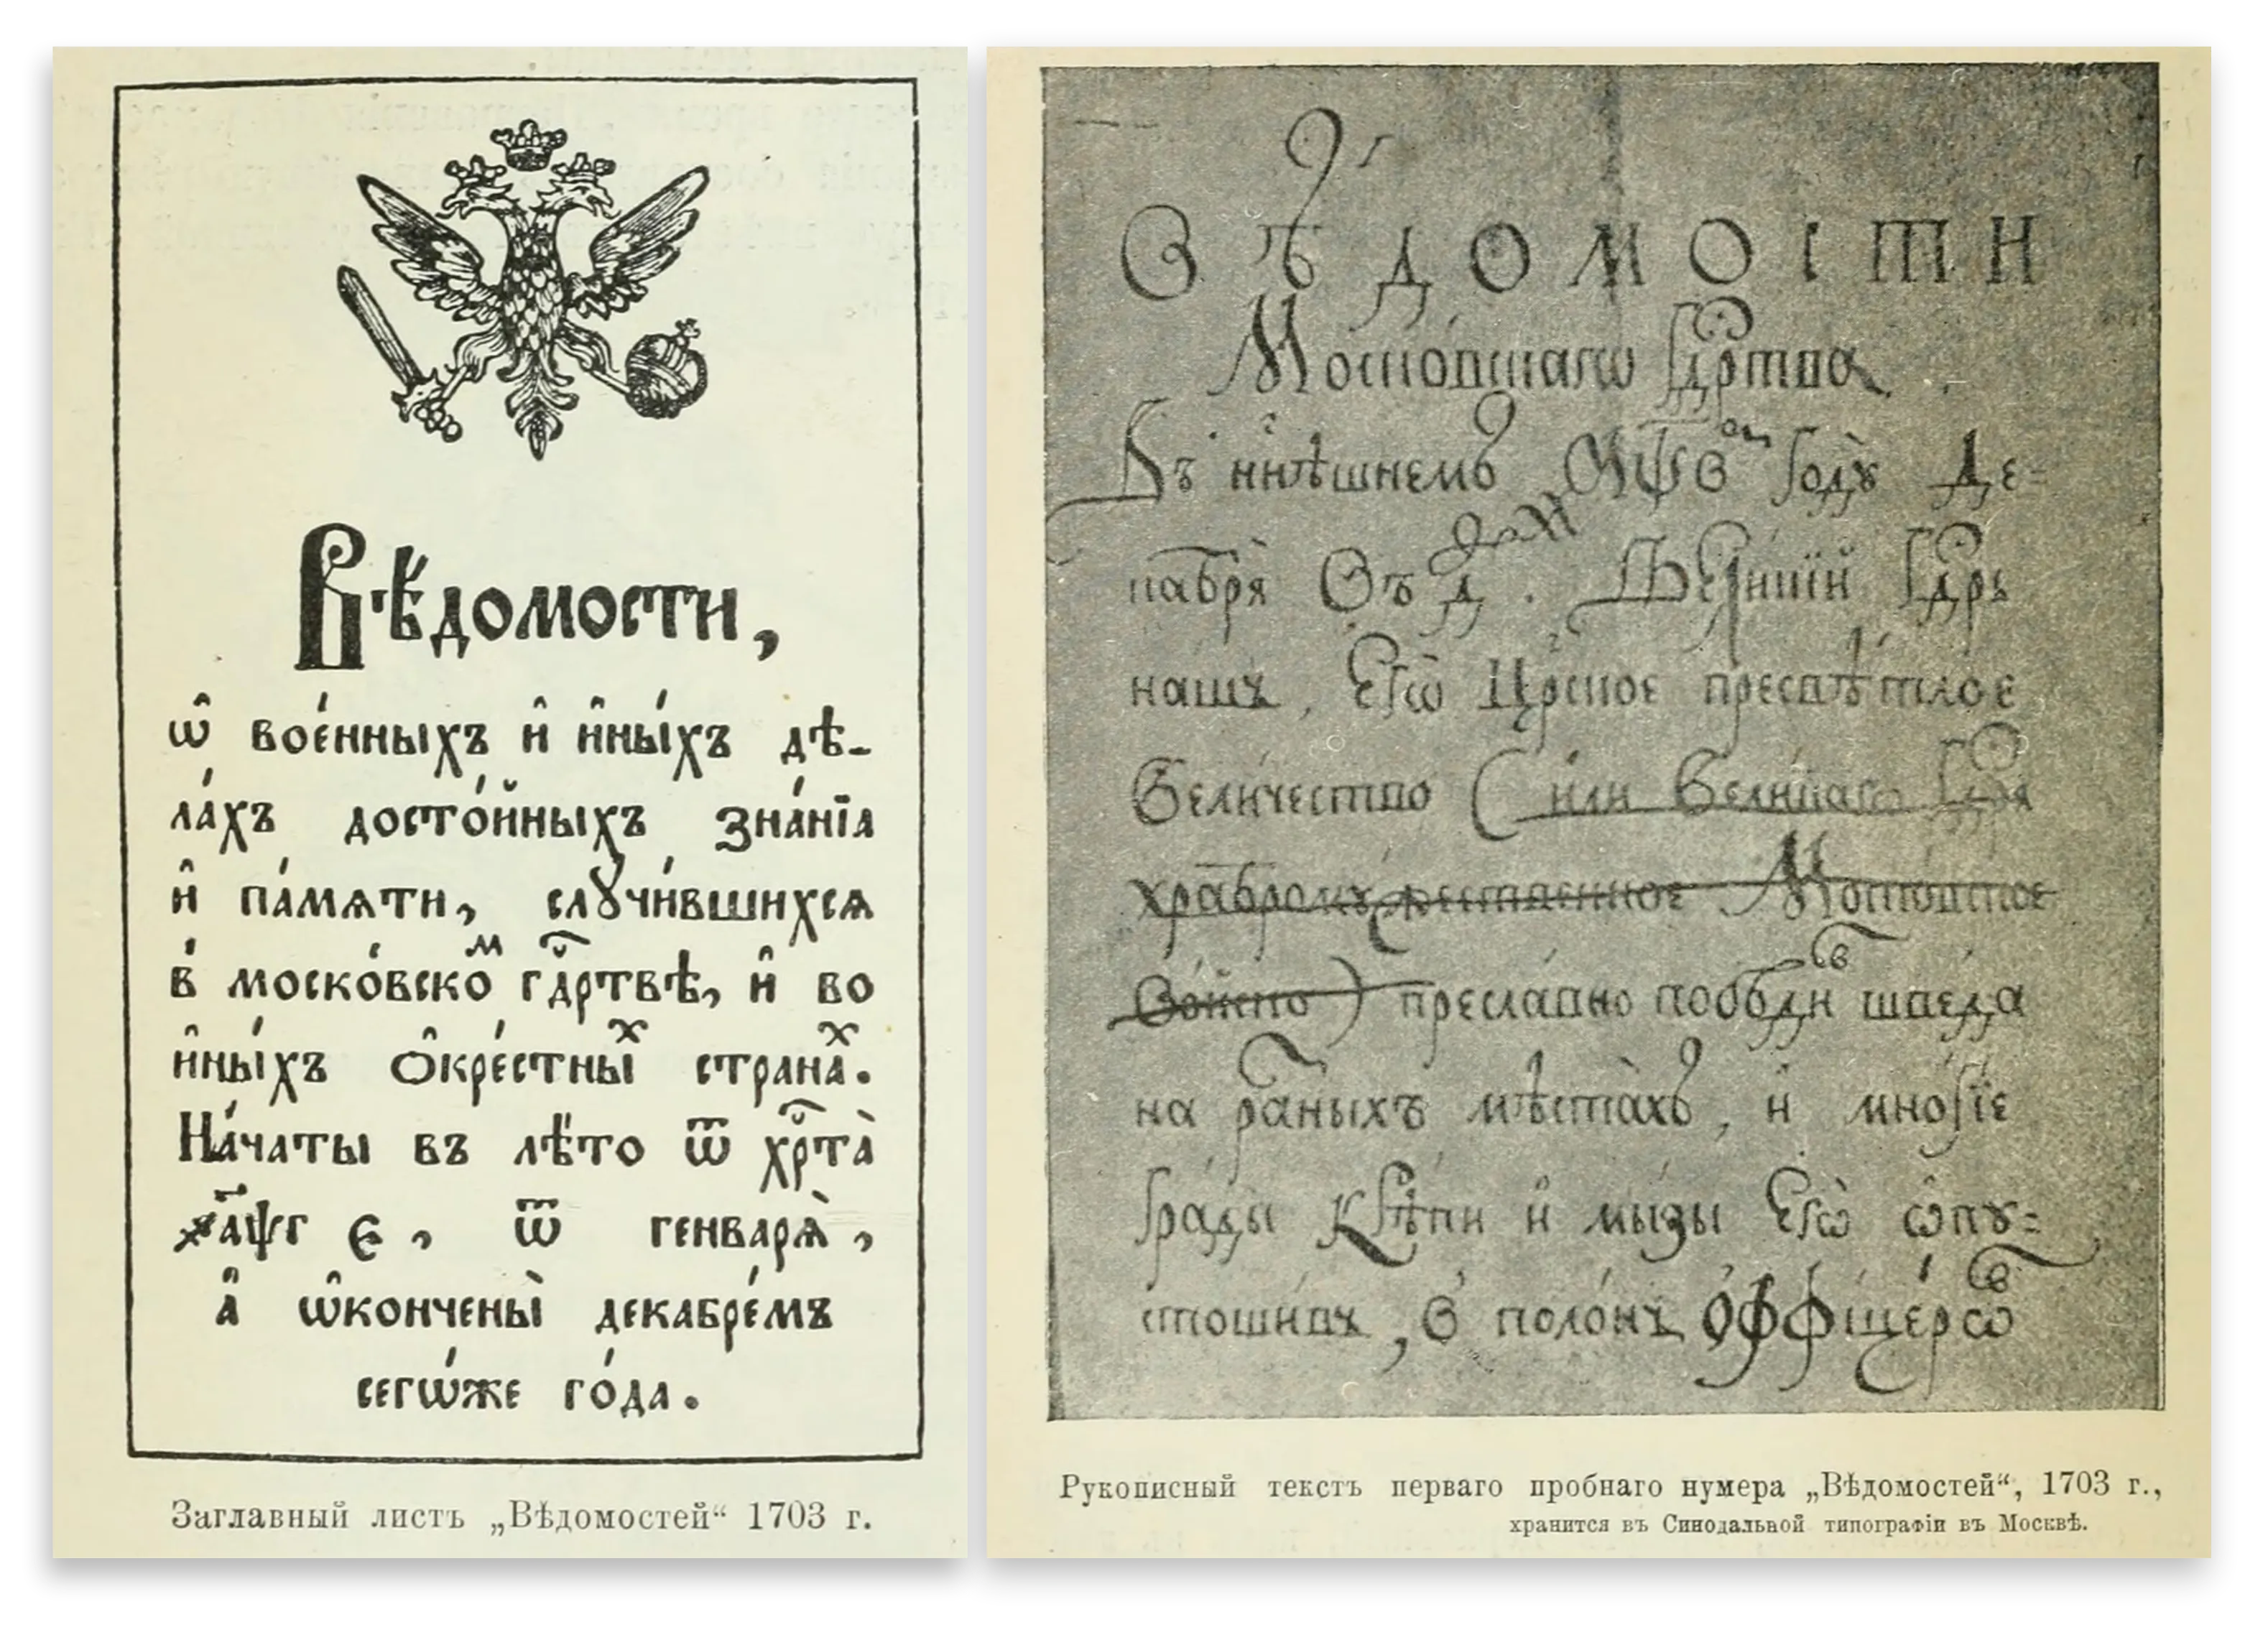 Вѣдомости,
ѡ҆ вое́нныхъ и҆ и҆ны́хъ дѣ-
ла́хъ досто́йныхъ зна́нїа
и҆ па́мѧти, слꙋчи́вшихсѧ
в̾ моско́вскоⷨ гⷭ҇дртвѣ, и҆ во
и҆ны́хъ ѻ҆кре́стныⷯ страна́ⷯ.
На́чаты въ лѣ́то ѿ хрⷭ҇та̀
҂аѱг є, ѿ генварѧ̀,
а҆ ѡ҆кончены̀ декабре́мъ
сегѡ́же го́да.
Заглавный листъ „Вѣдомостей“ 1703 г.
Вѣдомости
Моско́вскагѡ гⷭ҇дртва
Въ нн҃ѣшнемъ ҂аѱв году̀ де-
кабрѧ̀ въ
нашъ, Егѡ̀ Црⷭ҇кое пресвѣ́тлое
Вели́чество (и҆ли Великагѡ
хра́брому́жественное Моско́вское
Во́йско) пресла́вно шведа
на ра́ⷥныхъ мѣста̀хъ, и҆ мно́гїе
гра́ды и҆ мы́зы Егѡ̀ ѡ҆пꙋ-
стоши́въ, в поло́нъ ѻ҆ффїце́рѡⷡ
Рукописный текстъ перваго пробнаго нумера „Вѣдомостей“, 1703 г.,
хранится въ Синодальной типографіи въ Москвѣ.